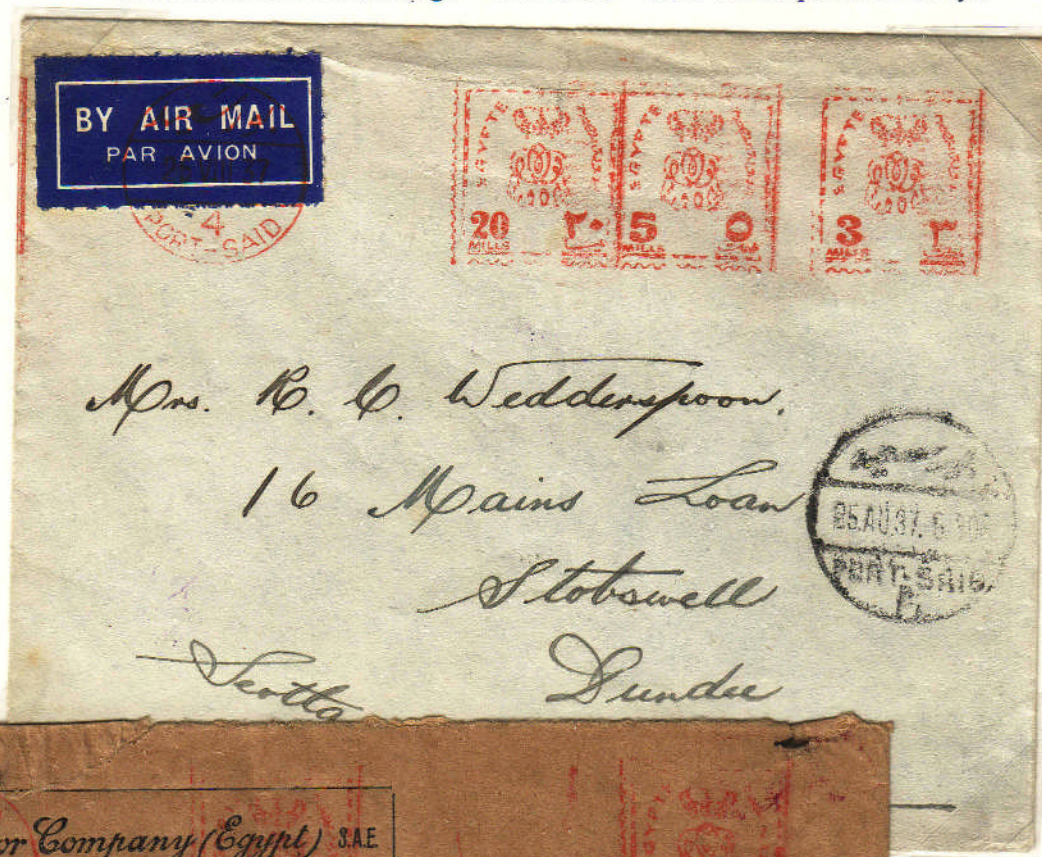 BY AIR MAIL
PAR AVION
4
PORT-SAID
EGYPTE
20 ٢٠
MILLS
EGYPTE
5 ٥
MILLS
EGYPTE
3 ٣
MILLS
Mrs. R. C. Wedderspoon.
16 Mains Loan
Stobswell
Dundee
25.AU.37.6
PORT-SAID.
or Company (Egypt) S.A.E.